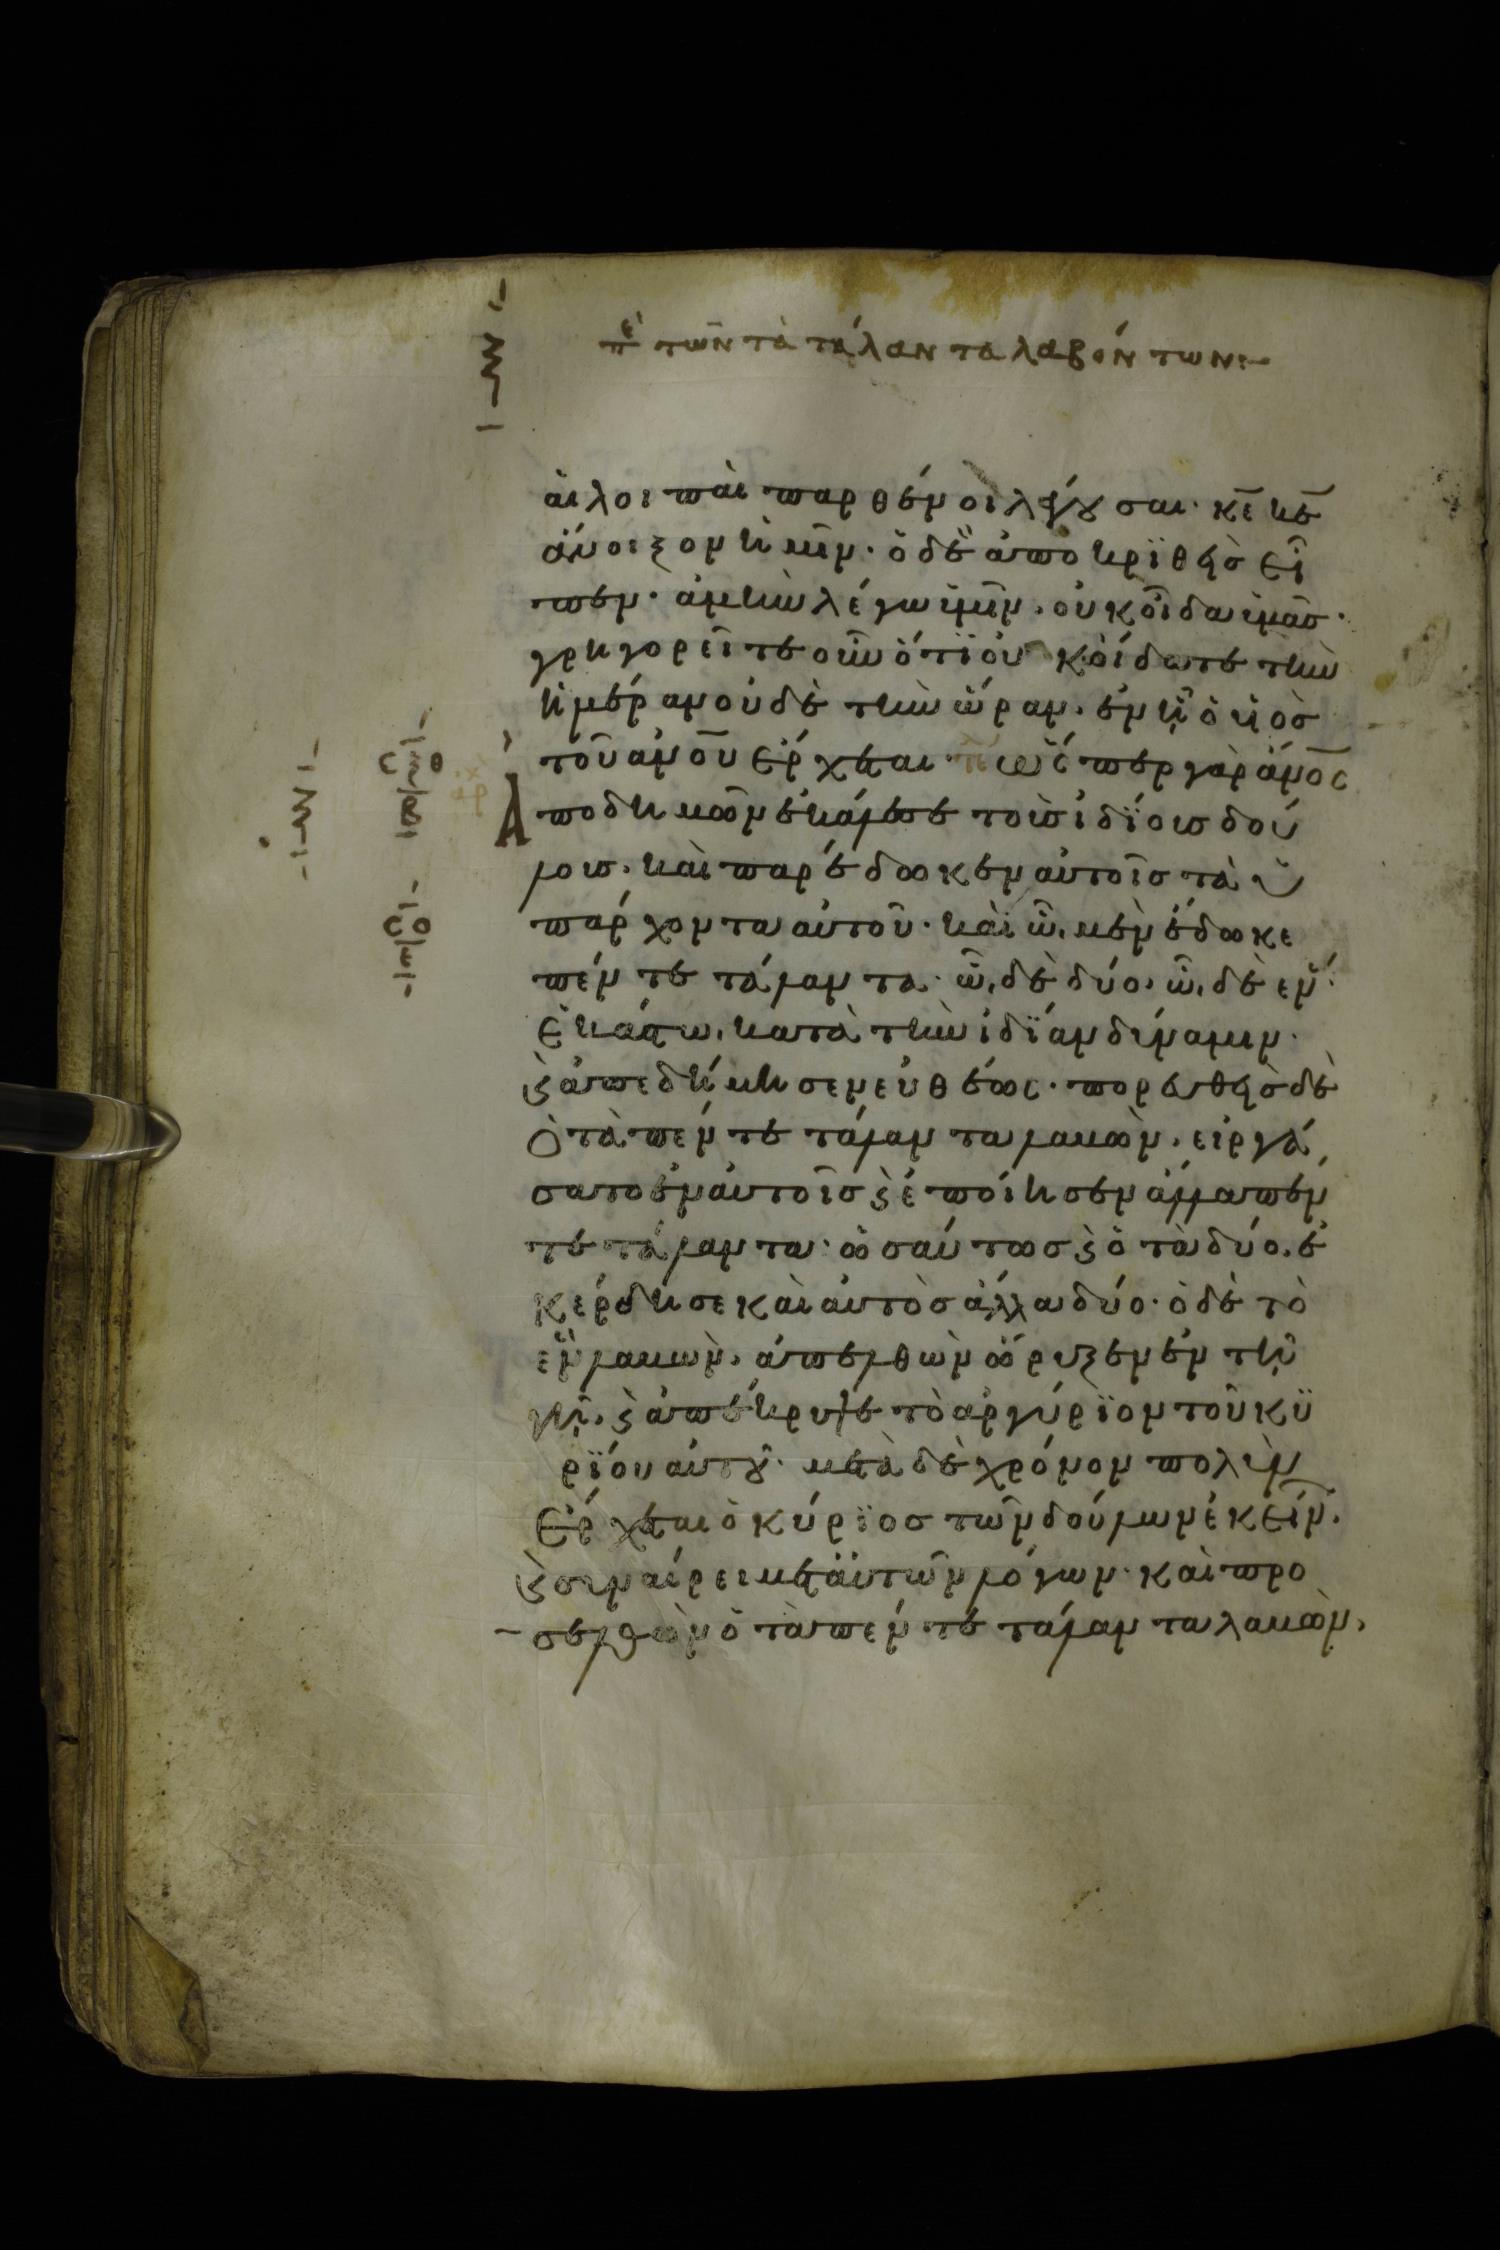 πε τῶν τὰ τάλαντα λαβόντων:~
αἱ λοιπαὶ παρθένοι λέγουσαι· κ̅ε̅ κ̅ε̅
ἄνοιξον ἡμῖν· ὁ δὲ ἀποκριθεὶς εἶ
πεν· ἀμὴν λέγω ὑμῖν, οὐκ οἶδα ὑμᾶς·
γρηγορεῖτε οὖν ὅτι οὐκ οἴδατε τὴν
ἡμέραν οὐδὲ τὴν ὥραν, ἐν ᾗ ὁ υἱὸς
τοῦ ανου ἔρχεται· ὥσπερ γὰρ ανος
ἀποδημῶν ἐκάλεσε τοὺς ἰδίους δού
λους, καὶ παρέδωκεν αὐτοῖς τὰ ὑ
πάρχοντα αὐτοῦ· καὶ ᾧ μὲν ἔδωκε
πέντε τάλαντα· ᾧ δὲ δύο, ᾧ δὲ ἕν·
ἑκάστω κατὰ τὴν ἰδίαν δύναμιν·
ϗ ἀπεδήμησεν εὐθέως· πορευθεὶς δὲ
ὁ τὰ πέντε τάλαντα λαβὼν, εἰργά
σατο ἐν αὐτοῖς ϗ ἐποίησεν ἄλλα πέν
τε τάλαντα· ὡσαύτως ϗ ὁ τὰ δύο, ἐ
κέρδησε καὶ αὐτὸς ἄλλα δύο· ὁ δὲ τὸ
ἓν λαβὼν, ἀπελθὼν ὤρυξεν ἐν τῇ
γῇ, ϗ ἀπέκρυψε τὸ ἀργύριον τοῦ κυ
ρίου αὐτοῦ· μετὰ δὲ χρόνον πολὺν
ἔρχεται ὁ κύριος τῶν δούλων ἐκείν,
ϗ συναίρει μετ' αὐτῶν λόγον· καὶ προ
σελθὼν ὁ τὰ πέντε τάλαντα λαβὼν,